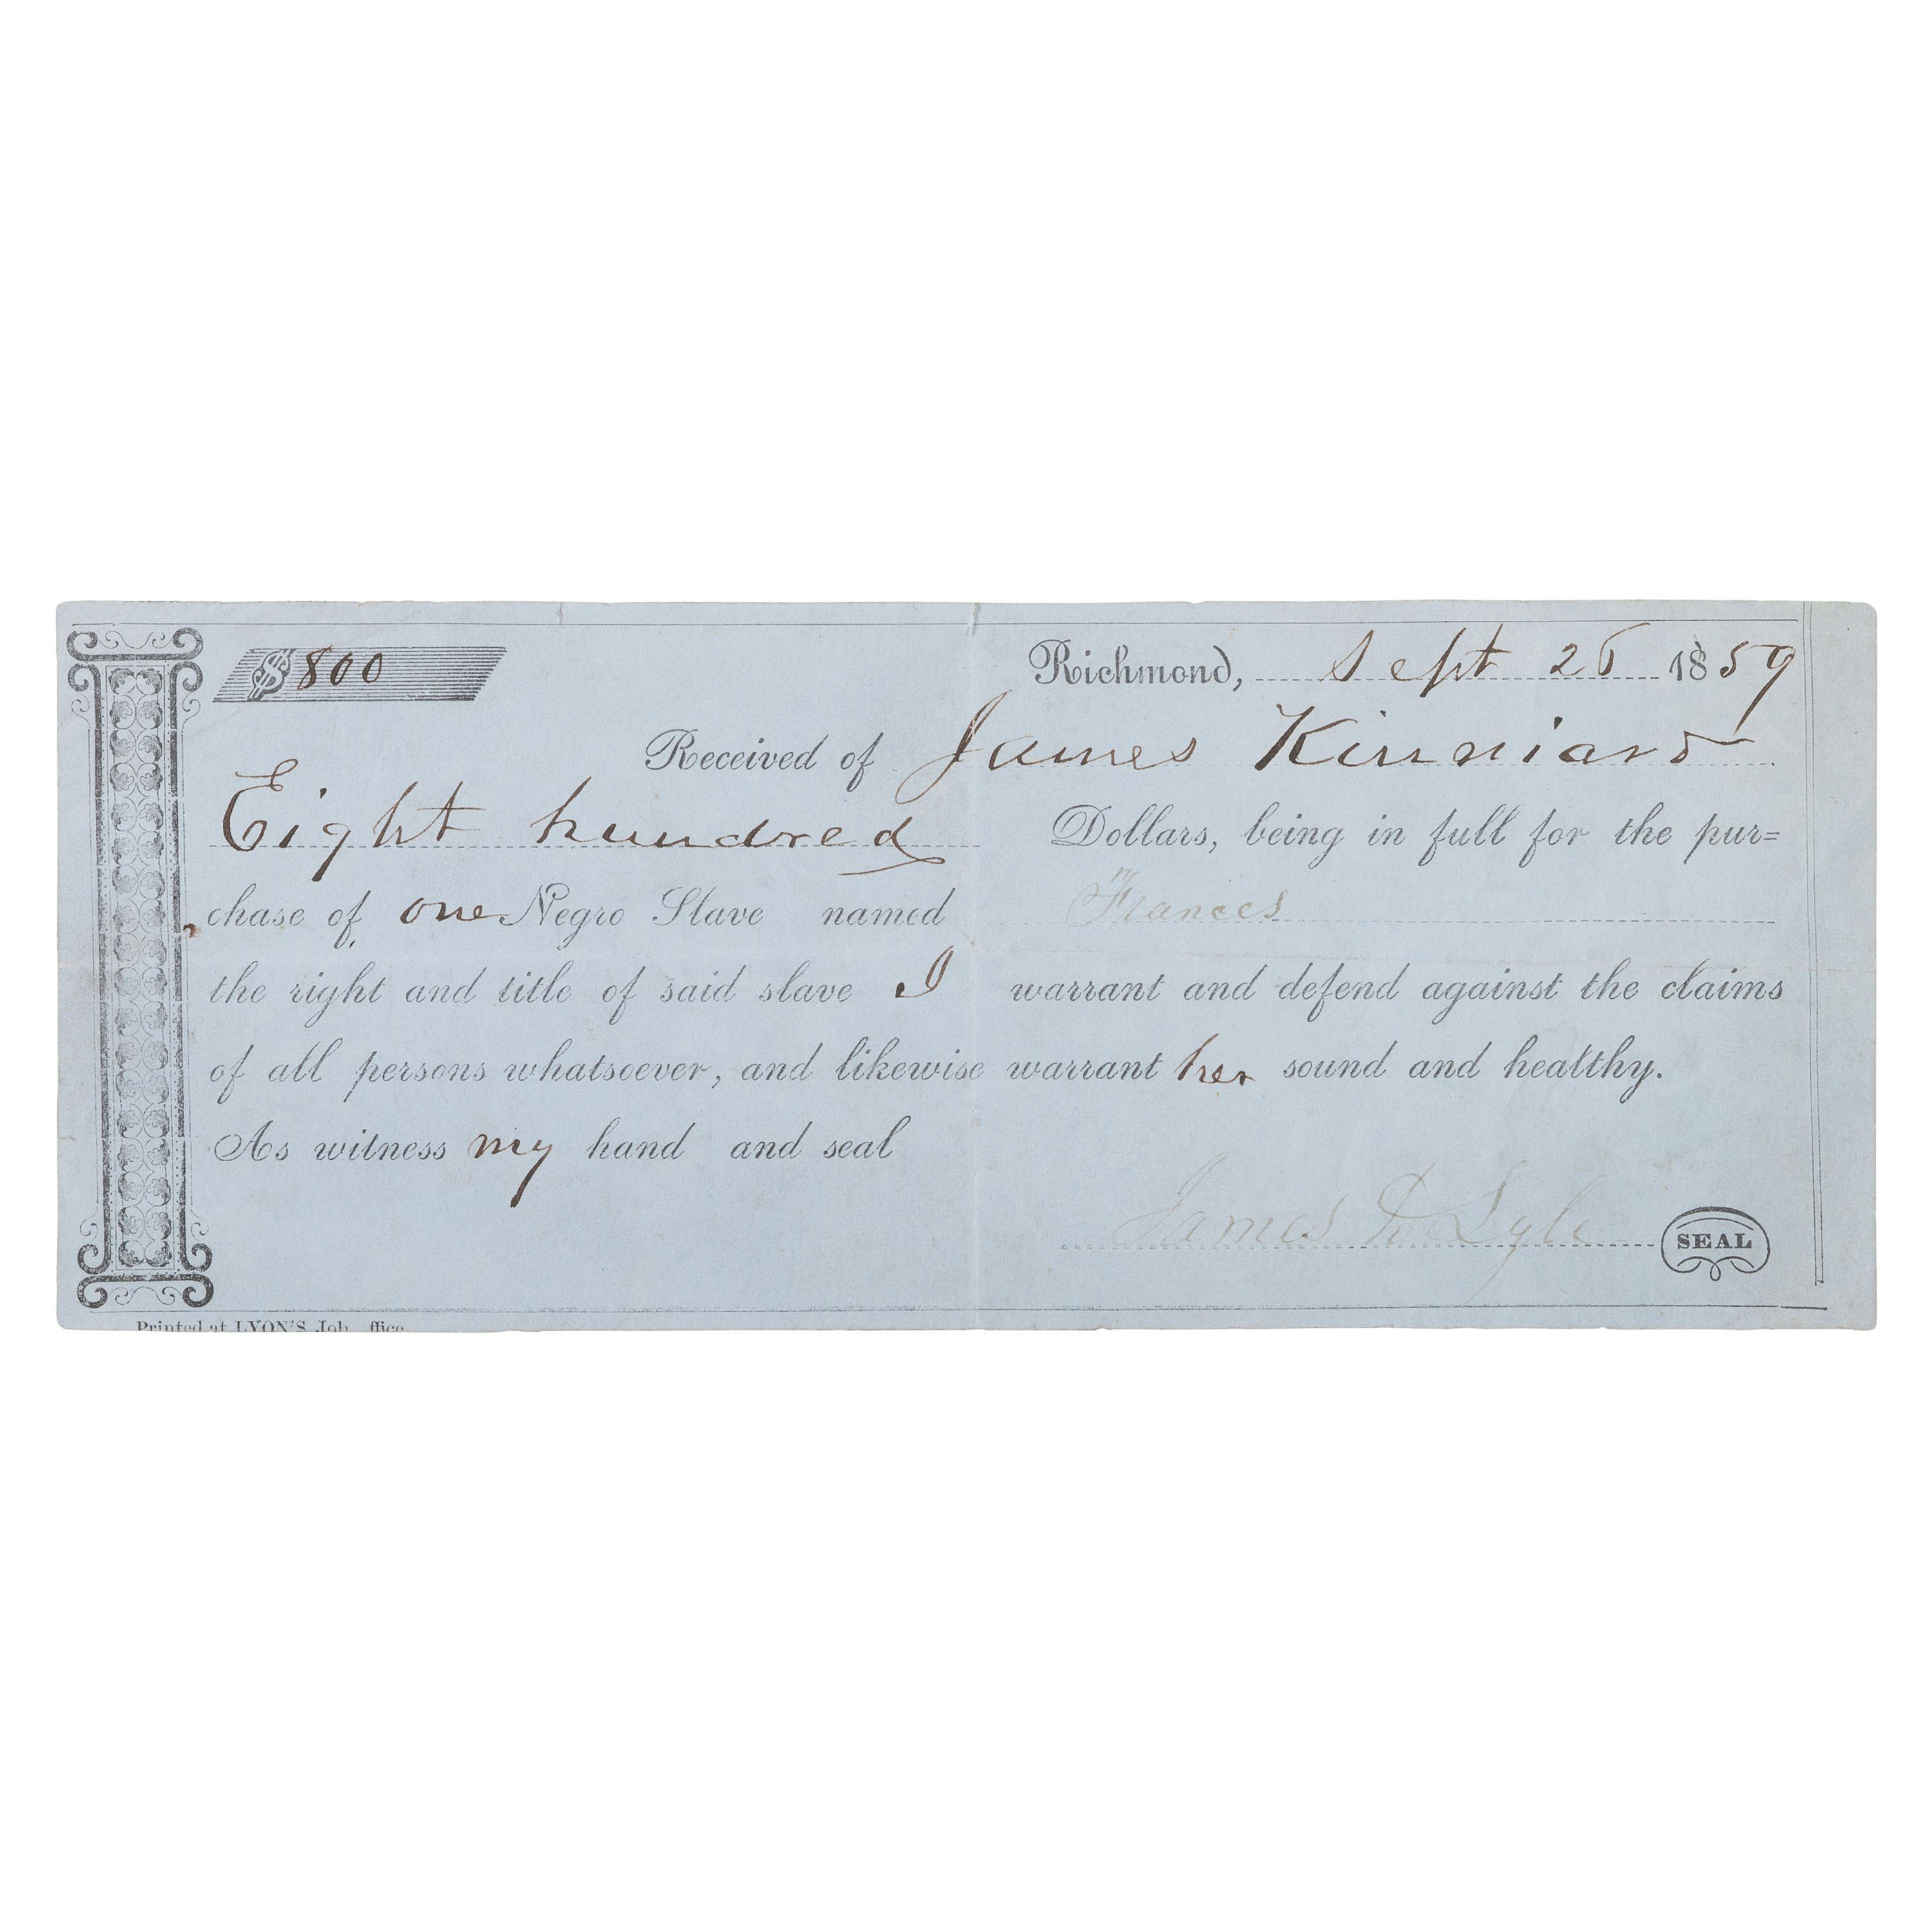 $ 800
Richmond, Sept 26 1859
Received of James Kinniard
Eight hundred Dollars, being in full for the pur=
chase of one Negro Slave named Frances
the right and title of said slave I warrant and defend against the claims
of all persons whatsoever, and likewise warrant her sound and healthy.
As witness my hand and seal
James Lyle SEAL
Printed at LYON'S Job ffice